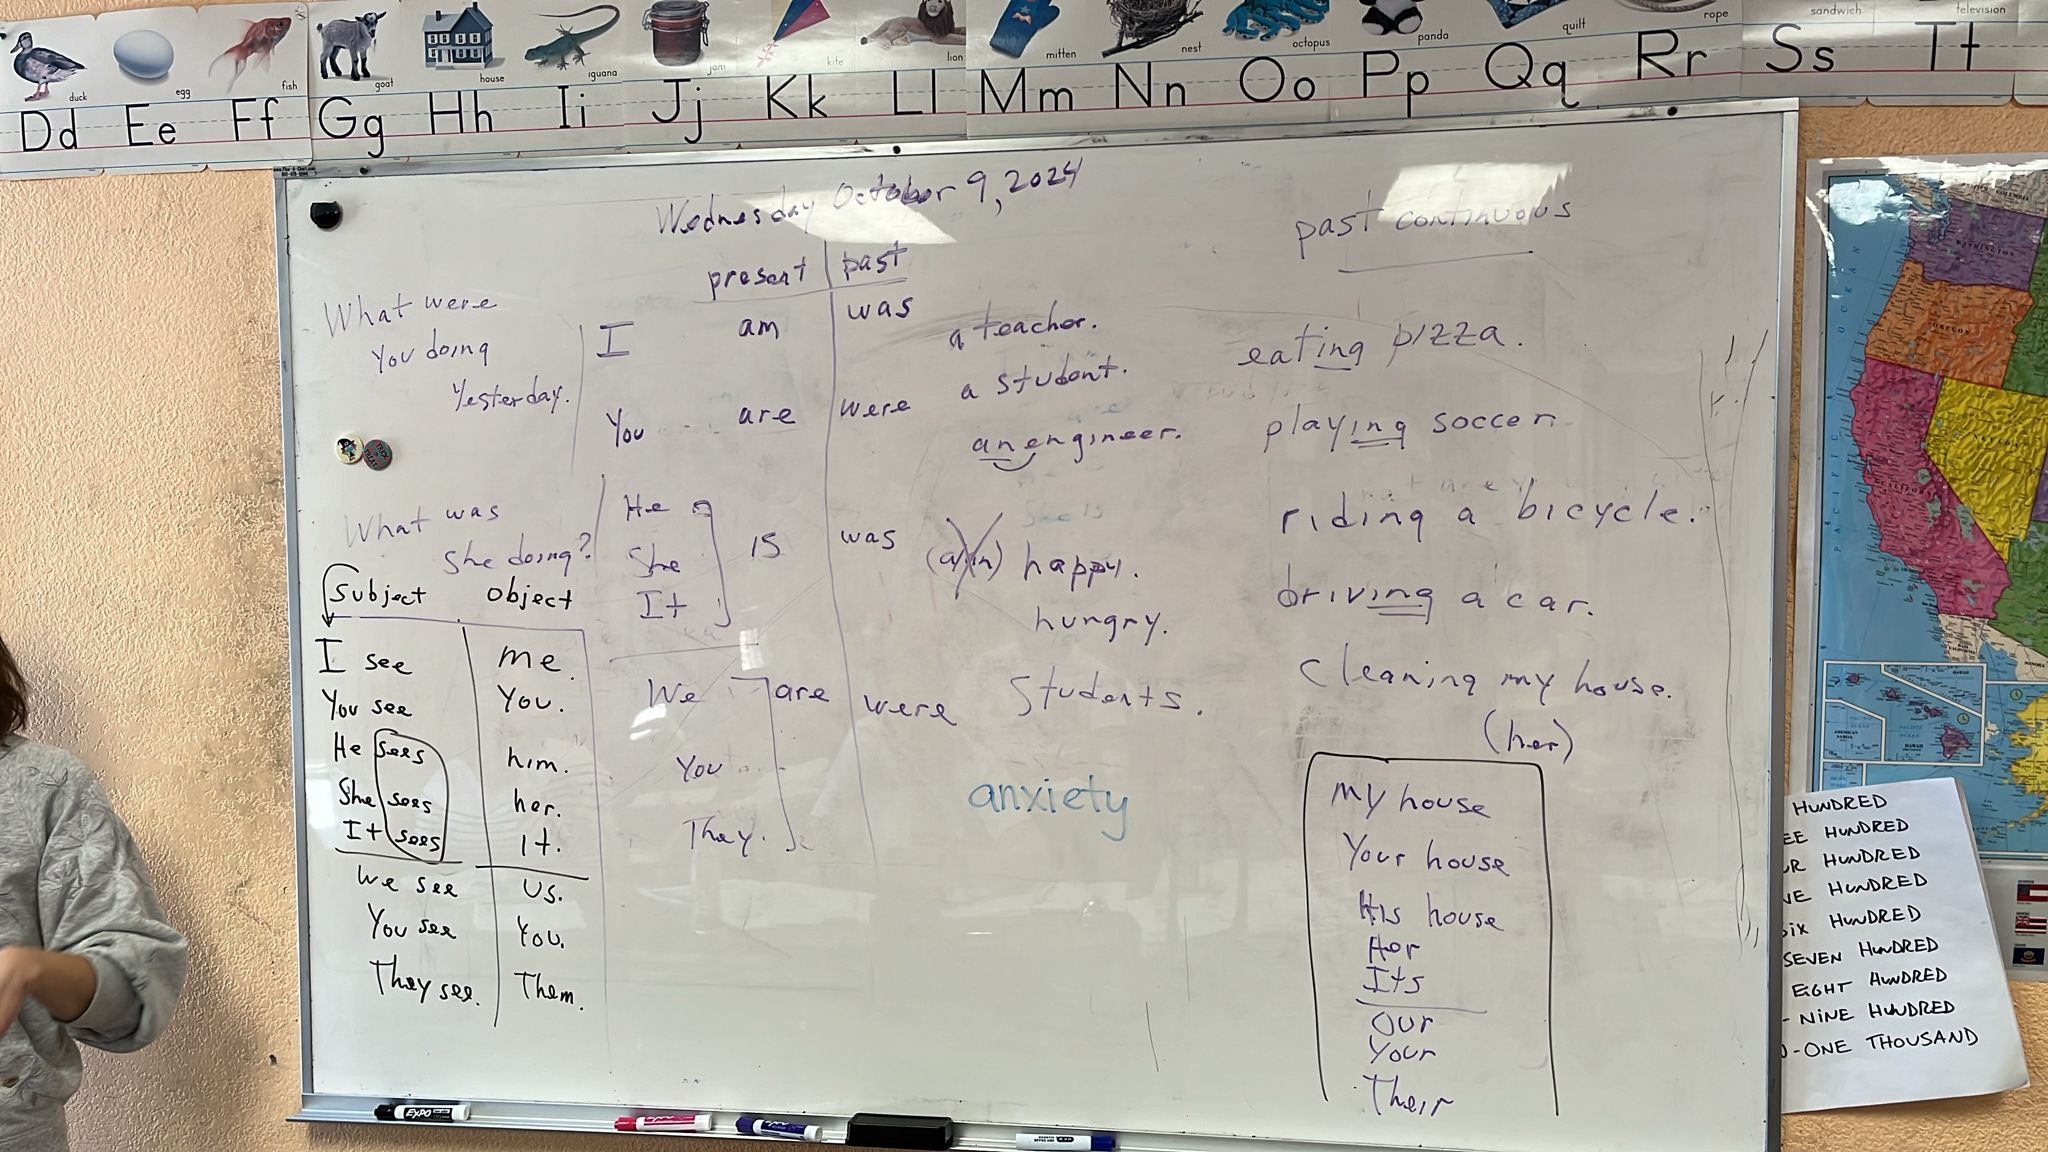 duck egg fish goat house iguana jam kite lion mitten nest octopus panda quilt rope sandwich television
Dd Ee Ff Gg Hh Ii Jj Kk Ll Mm Nn Oo Pp Qq Rr Ss Tt
Wednesday October 9, 2024
present past
What were
you doing
Yesterday.
I am was a teacher.
a student.
You are were
an engineer.
What was
she doing?
He
She is was (a/an) happy.
It
hungry.
We are were students.
You
They.
anxiety
subject object
I see me.
You see you.
He sees him.
She sees her.
It sees it.
We see us.
You see you.
They see. Them.
past continuous
eating pizza.
playing soccer.
riding a bicycle.
driving a car.
cleaning my house.
(her)
My house
Your house
His house
Her
Its
Our
Your
Their
EXPO
WASHINGTON
OREGON
CALIFORNIA
NEVADA
PACIFIC OCEAN
HAWAII
HUNDRED
EE HUNDRED
UR HUNDRED
VE HUNDRED
SIX HUNDRED
SEVEN HUNDRED
EIGHT HUNDRED
- NINE HUNDRED
-ONE THOUSAND